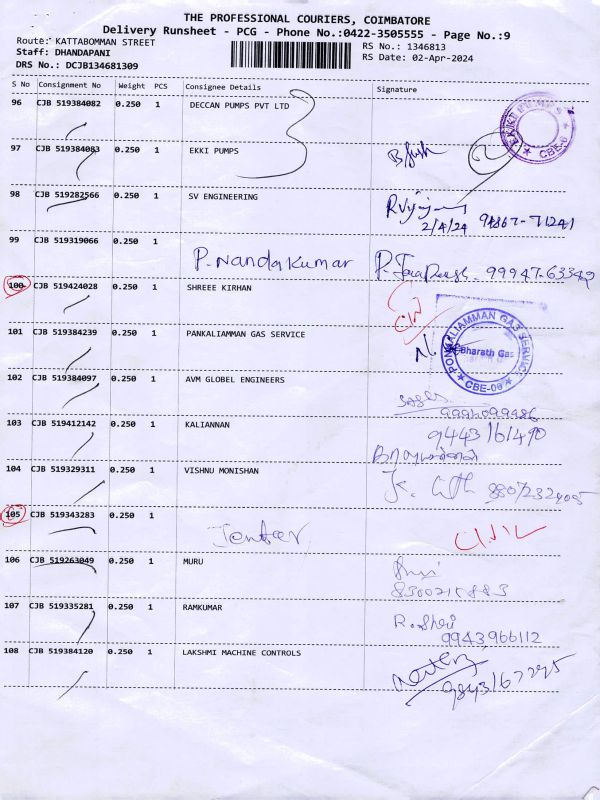 THE PROFESSIONAL COURIERS, COIMBATORE
Delivery Runsheet - PCG - Phone No.:0422-3505555 - Page No.:9
Route: KATTABOMMAN STREET
RS No.: 1346813
Staff: DHANDAPANI
RS Date: 02-Apr-2024
DRS No.: DCJB134681309
S No Consignment No Weight PCS Consignee Details Signature
96 CJB 519384082 0.250 1 DECCAN PUMPS PVT LTD
EKKI PUMPS
CBE-6
97 CJB 519384083 0.250 1 EKKI PUMPS
98 CJB 519282566 0.250 1 SV ENGINEERING
2/4/24
99 CJB 519319066 0.250 1
P. Nanda Kumar
99947-63342
100 CJB 519424028 0.250 1 SHREEE KIRHAN
101 CJB 519384239 0.250 1 PANKALIAMMAN GAS SERVICE
PONGALIAMMAN GAS SERVICE
Bharath Gas
CBE-06
102 CJB 519384097 0.250 1 AVM GLOBEL ENGINEERS
103 CJB 519412142 0.250 1 KALIANNAN
9443161490
104 CJB 519329311 0.250 1 VISHNU MONISHAN
105 CJB 519343283 0.250 1
106 CJB 519263049 0.250 1 MURU
107 CJB 519335281 0.250 1 RAMKUMAR
R. Shri
9943966112
108 CJB 519384120 0.250 1 LAKSHMI MACHINE CONTROLS